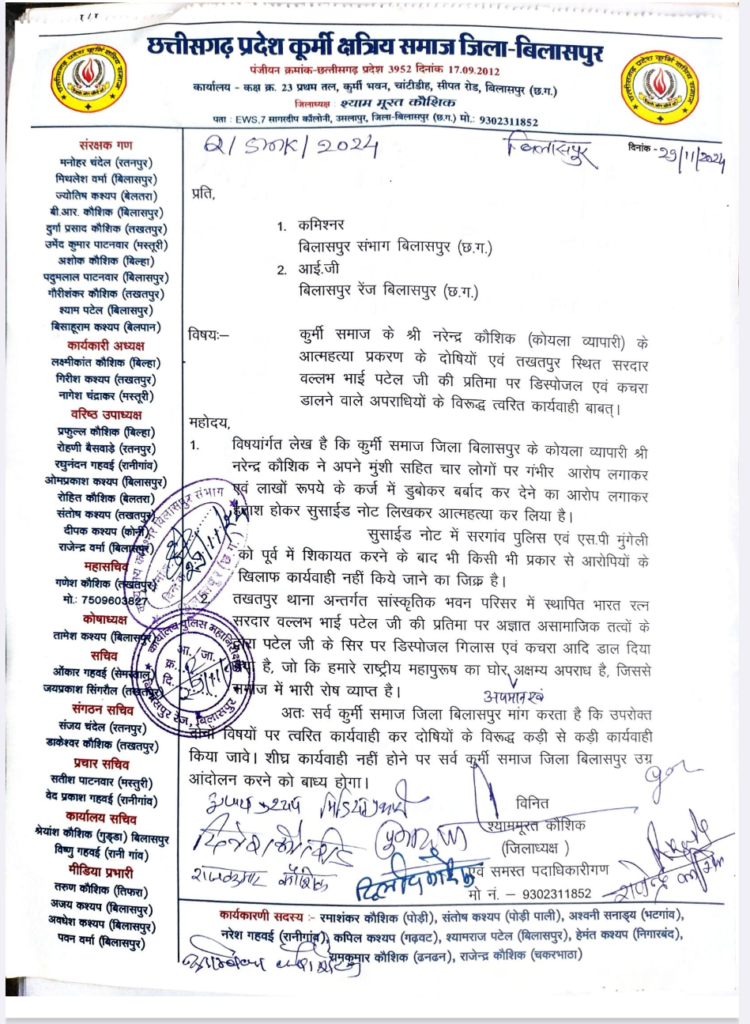 छत्तीसगढ़ प्रदेश कूर्मी क्षत्रिय समाज जिला-बिलासपुर
पंजीयन क्रमांक-छत्तीसगढ़ प्रदेश 3952 दिनांक 17.09.2012
कार्यालय - कक्ष क्र. 23 प्रथम तल, कुर्मी भवन, चांटीडीह, सीपत रोड, बिलासपुर (छ.ग.)
जिलाध्यक्ष : श्याम मूरत कौशिक
पता : EWS,7 सागरदीप कॉलोनी, उसलापुर, जिला-बिलासपुर (छ.ग.) मो.: 9302311852
बिलासपुर
दिनांक - 29/11/2024
संरक्षक गण
मनोहर चंदेल (रतनपुर)
मिथलेश वर्मा (बिलासपुर)
ज्योतिष कश्यप (बेलतरा)
बी.आर. कौशिक (बिलासपुर)
दुर्गा प्रसाद कौशिक (तखतपुर)
उमेंद कुमार पाटनवार (मस्तूरी)
अशोक कौशिक (बिल्हा)
पदुमलाल पाटनवार (बिलासपुर)
गौरीशंकर कौशिक (तखतपुर)
श्याम पटेल (बिलासपुर)
बिसाहूराम कश्यप (बेलपान)
कार्यकारी अध्यक्ष
लक्ष्मीकांत कौशिक (बिल्हा)
गिरीश कश्यप (तखतपुर)
नागेश चंद्राकर (मस्तूरी)
वरिष्ठ उपाध्यक्ष
प्रफुल्ल कौशिक (बिल्हा)
रोहणी बैसवाड़े (रतनपुर)
रघुनंदन गहवई (रानीगांव)
ओमप्रकाश कश्यप (बिलासपुर)
रोहित कौशिक (बेलतरा)
संतोष कश्यप (तखतपुर)
दीपक कश्यप (कोनी)
राजेन्द्र वर्मा (बिलासपुर)
महासचिव
गणेश कौशिक (तखतपुर)
मो.: 7509603827
कोषाध्यक्ष
तामेश कश्यप (बिलासपुर)
सचिव
ओंकार गहवई (सेमरताल)
जयप्रकाश सिंगरौल (तखतपुर)
संगठन सचिव
संजय चंदेल (रतनपुर)
डाकेश्वर कौशिक (तखतपुर)
प्रचार सचिव
सतीश पाटनवार (मस्तुरी)
वेद प्रकाश गहवई (रानीगांव)
कार्यालय सचिव
श्रेयांश कौशिक (गुड्डा) बिलासपुर
विष्णु गहवई (रानी गांव)
मीडिया प्रभारी
तरुण कौशिक (तिफरा)
अजय कश्यप (बिलासपुर)
अवधेश कश्यप (बिलासपुर)
पवन वर्मा (बिलासपुर)
प्रति,
1. कमिश्नर
बिलासपुर संभाग बिलासपुर (छ.ग.)
2. आई.जी
बिलासपुर रेंज बिलासपुर (छ.ग.)
विषयः– कुर्मी समाज के श्री नरेन्द्र कौशिक (कोयला व्यापारी) के
आत्महत्या प्रकरण के दोषियों एवं तखतपुर स्थित सरदार
वल्लभ भाई पटेल जी की प्रतिमा पर डिस्पोजल एवं कचरा
डालने वाले अपराधियों के विरूद्ध त्वरित कार्यवाही बाबत्।
महोदय,
1. विषयांर्गत लेख है कि कुर्मी समाज जिला बिलासपुर के कोयला व्यापारी श्री
नरेन्द्र कौशिक ने अपने मुंशी सहित चार लोगों पर गंभीर आरोप लगाकर
एवं लाखों रूपये के कर्ज में डुबोकर बर्बाद कर देने का आरोप लगाकर
हताश होकर सुसाईड नोट लिखकर आत्महत्या कर लिया है।
सुसाईड नोट में सरगांव पुलिस एवं एस.पी मुंगेली
को पूर्व में शिकायत करने के बाद भी किसी भी प्रकार से आरोपियों के
खिलाफ कार्यवाही नहीं किये जाने का जिक्र है।
2. तखतपुर थाना अन्तर्गत सांस्कृतिक भवन परिसर में स्थापित भारत रत्न
सरदार वल्लभ भाई पटेल जी की प्रतिमा पर अज्ञात असामाजिक तत्वों के
द्वारा पटेल जी के सिर पर डिस्पोजल गिलास एवं कचरा आदि डाल दिया
गया है, जो कि हमारे राष्ट्रीय महापुरूष का घोर अक्षम्य अपराध है, जिससे
समाज में भारी रोष व्याप्त है।
अपमान एवं
अतः सर्व कुर्मी समाज जिला बिलासपुर मांग करता है कि उपरोक्त
दोनो विषयों पर त्वरित कार्यवाही कर दोषियों के विरूद्ध कड़ी से कड़ी कार्यवाही
किया जावे। शीघ्र कार्यवाही नहीं होने पर सर्व कुर्मी समाज जिला बिलासपुर उग्र
आंदोलन करने को बाध्य होगा।
विनित
श्याममूरत कौशिक
(जिलाध्यक्ष)
एवं समस्त पदाधिकारीगण
मो नं. – 9302311852
राजकुमार कौशिक
कार्यकारणी सदस्य :- रमाशंकर कौशिक (पोड़ी), संतोष कश्यप (पोड़ी पाली), अश्वनी सनाड्य (भटगांव),
नरेश गहवई (रानीगांव), कपिल कश्यप (गढ़वट), श्यामराज पटेल (बिलासपुर), हेमंत कश्यप (निगारबंद),
रामकुमार कौशिक (ढनढन), राजेन्द्र कौशिक (चकरभाठा)